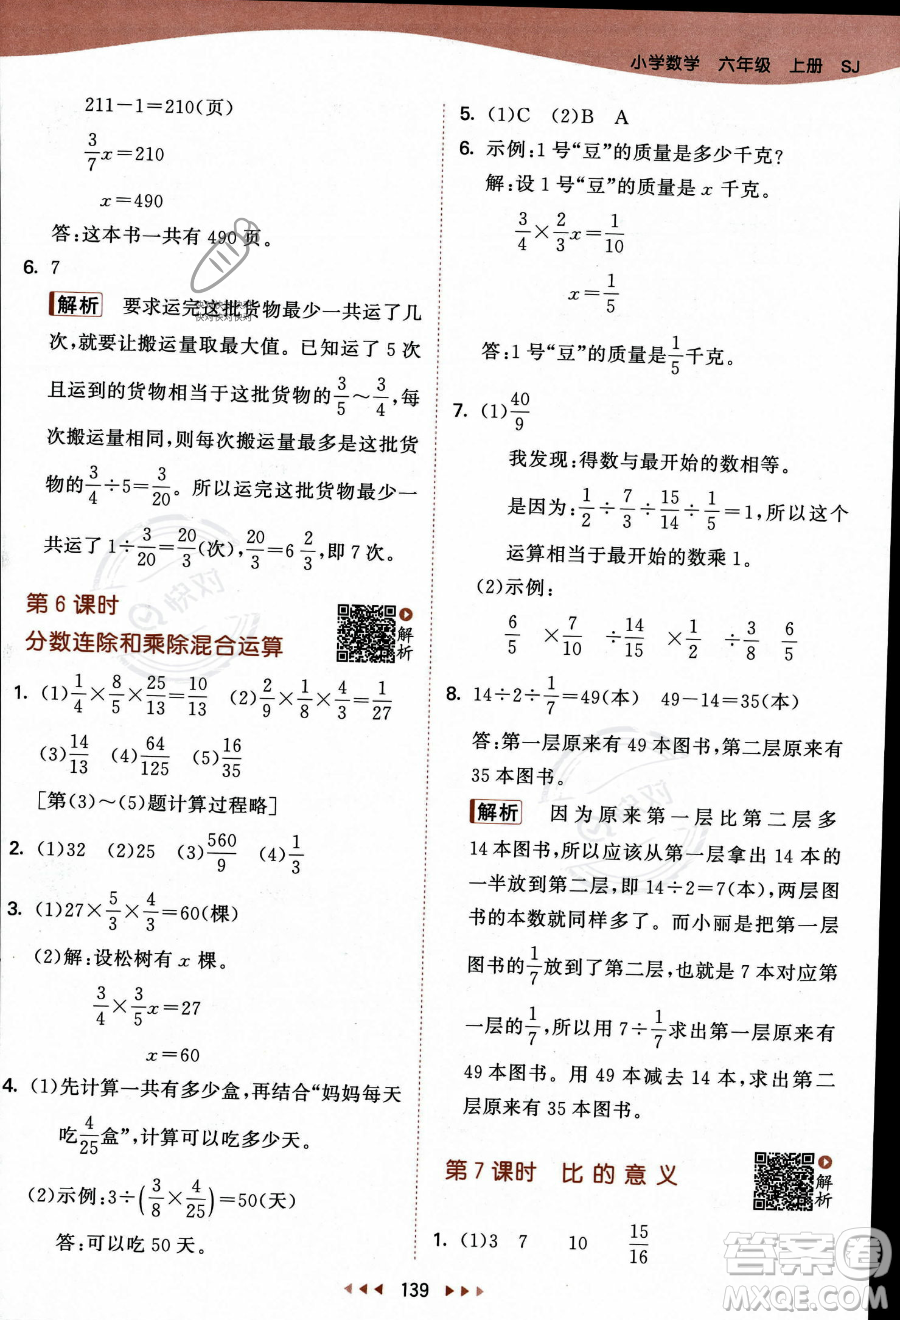 小学数学 六年级 上册 SJ
211－1＝210(页)
3/7 x＝210
x＝490
答:这本书一共有 490 页。
6. 7
解析 要求运完这批货物最少一共运了几
次,就要让搬运量取最大值。已知运了 5 次
且运到的货物相当于这批货物的 3/5 ～ 3/4,每
次搬运量相同,则每次搬运量最多是这批货
物的 3/4 ÷5＝ 3/20。所以运完这批货物最少一
共运了 1÷ 3/20 ＝ 20/3 (次), 20/3 ＝6 2/3,即 7 次。
第 6 课时
分数连除和乘除混合运算
解析
1. (1) 1/4 × 8/5 × 25/13 ＝ 10/13 (2) 2/9 × 1/8 × 4/3 ＝ 1/27
(3) 14/13 (4) 64/125 (5) 16/35
[第(3)～(5)题计算过程略]
2. (1)32 (2)25 (3) 560/9 (4) 1/3
3. (1)27× 5/3 × 4/3 ＝60(棵)
(2)解:设松树有 x 棵。
3/4 × 3/5 x＝27
x＝60
4. (1)先计算一共有多少盒,再结合“妈妈每天
吃 4/25 盒”,计算可以吃多少天。
(2)示例:3÷( 3/8 × 4/25 )＝50(天)
答:可以吃 50 天。
5. (1)C (2)B A
6. 示例:1 号“豆”的质量是多少千克?
解:设 1 号“豆”的质量是 x 千克。
3/4 × 2/3 x＝ 1/10
x＝ 1/5
答:1 号“豆”的质量是 1/5 千克。
7. (1) 40/9
我发现:得数与最开始的数相等。
是因为: 1/2 ÷ 7/3 ÷ 15/14 ÷ 1/5 ＝1,所以这个
运算相当于最开始的数乘 1。
(2)示例:
6/5 ÷ 7/10 ÷ 14/15 × 6/7 × 7/8 ÷ 3/8 6/5
8. 14÷2÷ 1/7 ＝49(本) 49－14＝35(本)
答:第一层原来有 49 本图书,第二层原来有
35 本图书。
解析 因为原来第一层比第二层多
14 本图书,所以应该从第一层拿出 14 本的
一半放到第二层,即 14÷2＝7(本),两层图
书的本数就同样多了。而小丽是把第一层
图书的 1/7 放到了第二层,也就是 7 本对应第
一层的 1/7,所以用 7÷ 1/7 求出第一层原来有
49 本图书。用 49 本减去 14 本,求出第二
层原来有 35 本图书。
第 7 课时 比的意义
解析
1. (1)3 7 10 15/16
139
快对
快对
答案圈
MXQE.COM